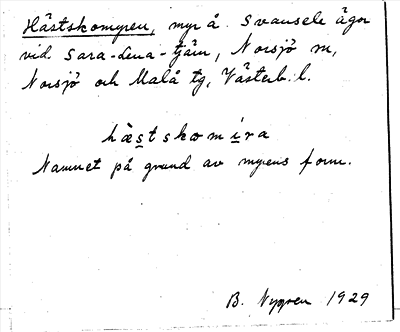 Hästskomyren, myr å Svansele ägor
vid Sara-Lena-tjärn, Norsjö sn,
Norsjö och Malå tg, Västerb. l.
hæstskomira
Namnet på grund av myrens form.
B. Nygren 1929